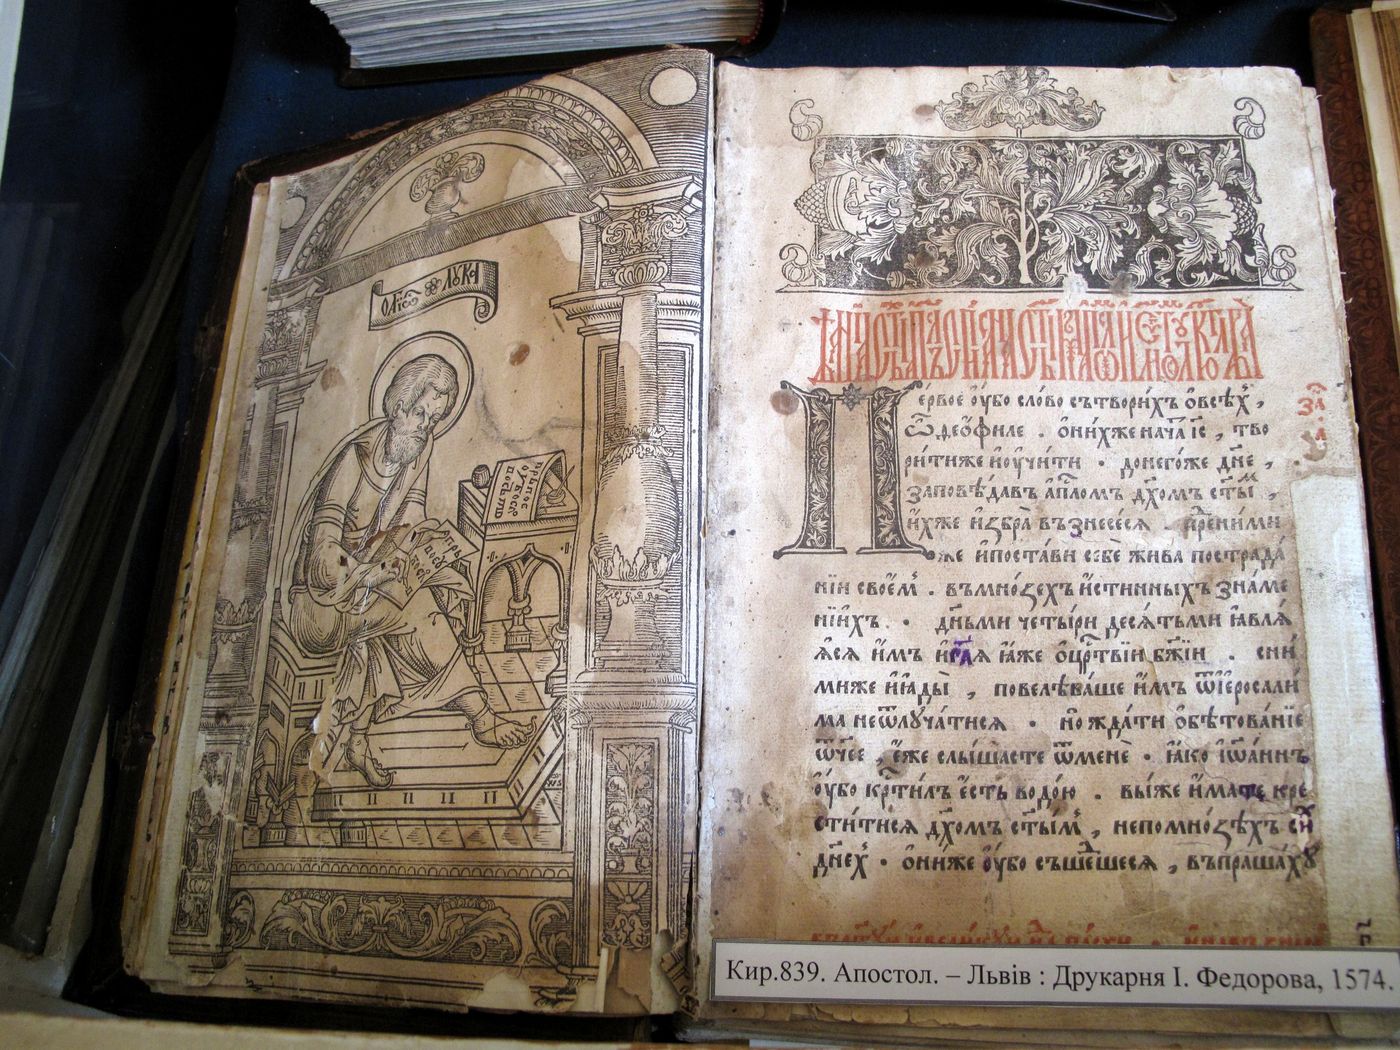 ѺАГІѺС ЛУКА
пръвое
оубосло
посътв
прьв
Первое ѹбо сло́во сътвори́хъ ѡвсѣ́хъ,
ѽ деѻ́филе . ѡни́хже нача́тъ і҃с , тво
ри́тиже иѹчи́ти · до него́же дн҃е ,
заповѣ́давъ ап҃лѡмъ дх҃омъ ст҃ы́мъ ,
и́хже избра̀ възнесе́ся . преⷣни́ми
же ипоста́ви себѐ жи́ва по страда́
нїи свое́мъ . въ мно́ѕехъ и́стинныхъ зна́ме
нїихъ . дн҃ьми четы́ри деся́тьми ꙗвля́
ѧся и҆мъ игл҃я ꙗ҆́же ѡцр҃твїи бж҃їи . сни́
миже ияды̀ , повелѣва́ше и҆мъ ѿ іеросали́
ма неѿлуча́тися · но жда́ти ѡбѣтова́нїе
ѿч҃ее , е҆́же слы́шасте ѿ менѐ · ꙗ҆́ко іѡа́ннъ
ѹбо кр҃ти́лъ е҆́сть водо́ю . вы́же и҆́мате кре
сти́тися дх҃омъ ст҃ы́мъ , непомно́ѕѣхъ си́хъ
дн҃ехъ · ѡни́же ѹбо съше́дшеся , въпраша́ху
Кир.839. Апостол. – Львів : Друкарня І. Федорова, 1574.